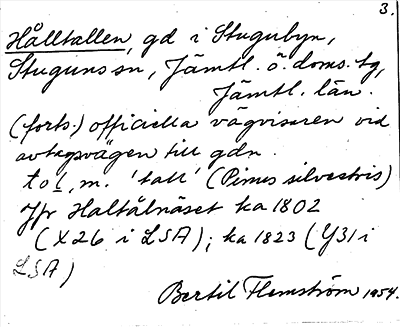 3.
Hålltallen, gd i Stugubyn,
Stuguns sn, Jämtl. ö. doms. tg,
Jämtl. län.
(forts.) officiella vägvisaren vid
avtagsvägen till gdn.
tol, m. 'tall' (Pinus silvestris)
Jfr Haltålnäset ka 1802
(X26 i LSA); ka 1823 (Y31 i
LSA)
Bertil Flemström 1954.